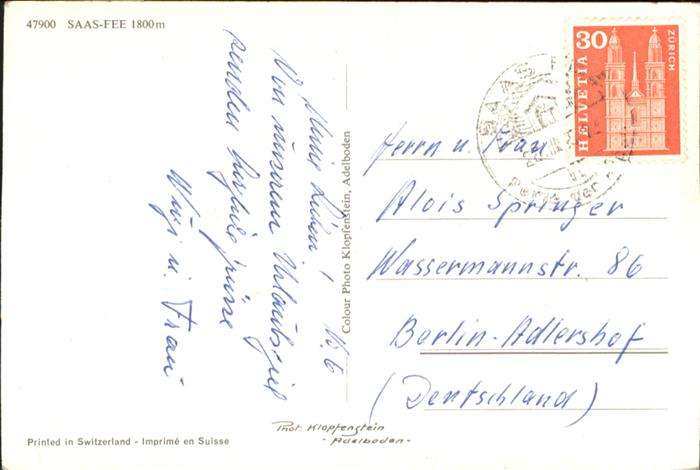 47900 SAAS-FEE 1800m
Meine Lieben!
Von unserem Urlaubsziel
senden herzliche Grüsse
u. Frau
Colour Photo Klopfenstein, Adelboden
30
HELVETIA
ZÜRICH
SAAS
Herrn u. Frau
Alois Springer
Wassermannstr. 86
Berlin-Adlershof
(Deutschland)
Phot. Klopfenstein
- Adelboden -
Printed in Switzerland - Imprimé en Suisse